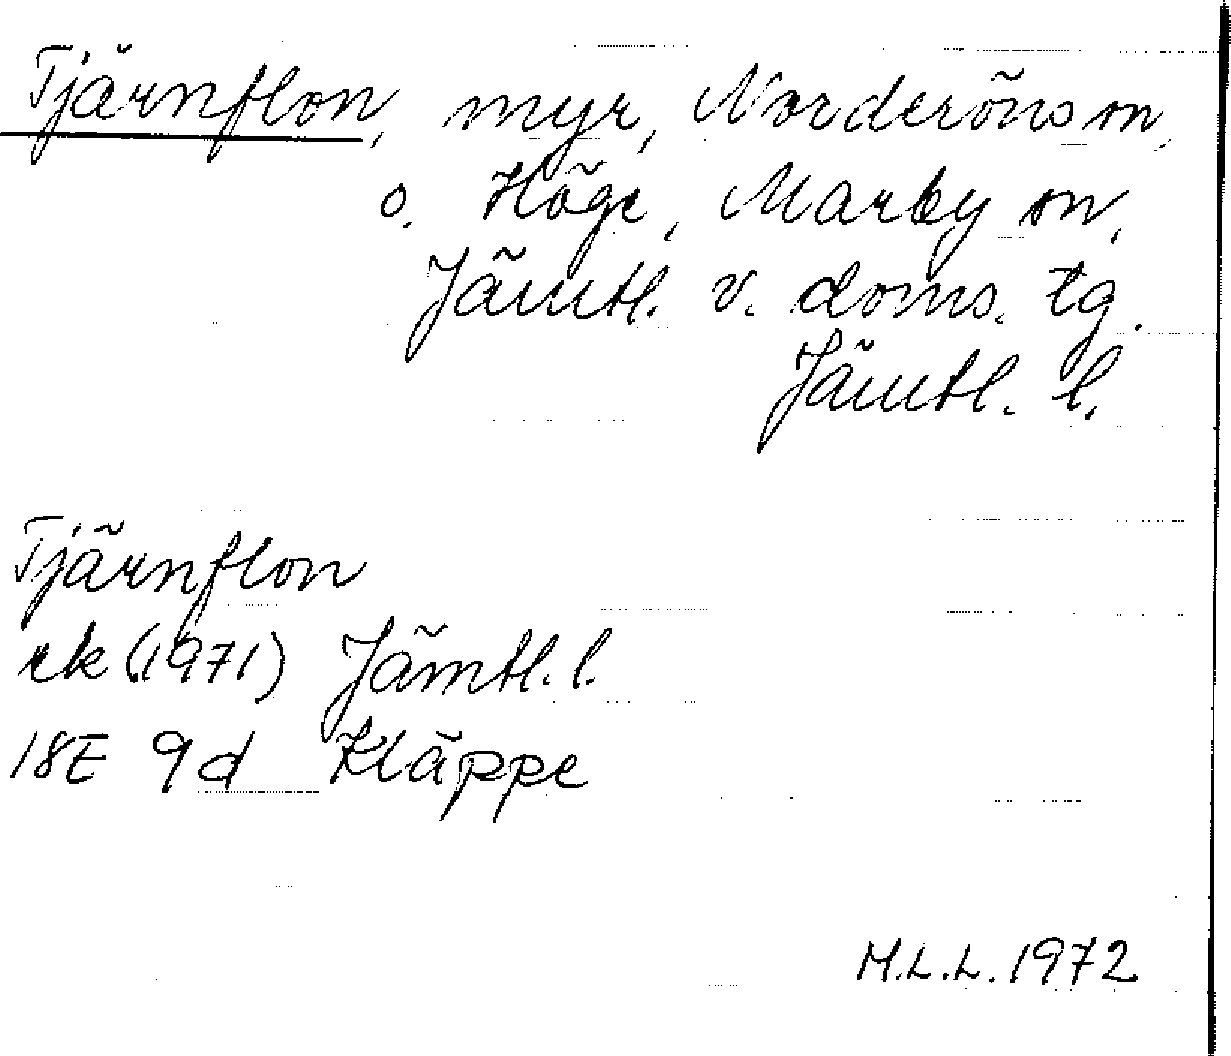 Tjärnflon, myr, Norderöns sn,
o. Höge, Marby sn,
Jämtl. v. doms. tg.
Jämtl. l.
Tjärnflon
ek (1971) Jämtl. l.
18E 9d Kläppe
M.L.L. 1972